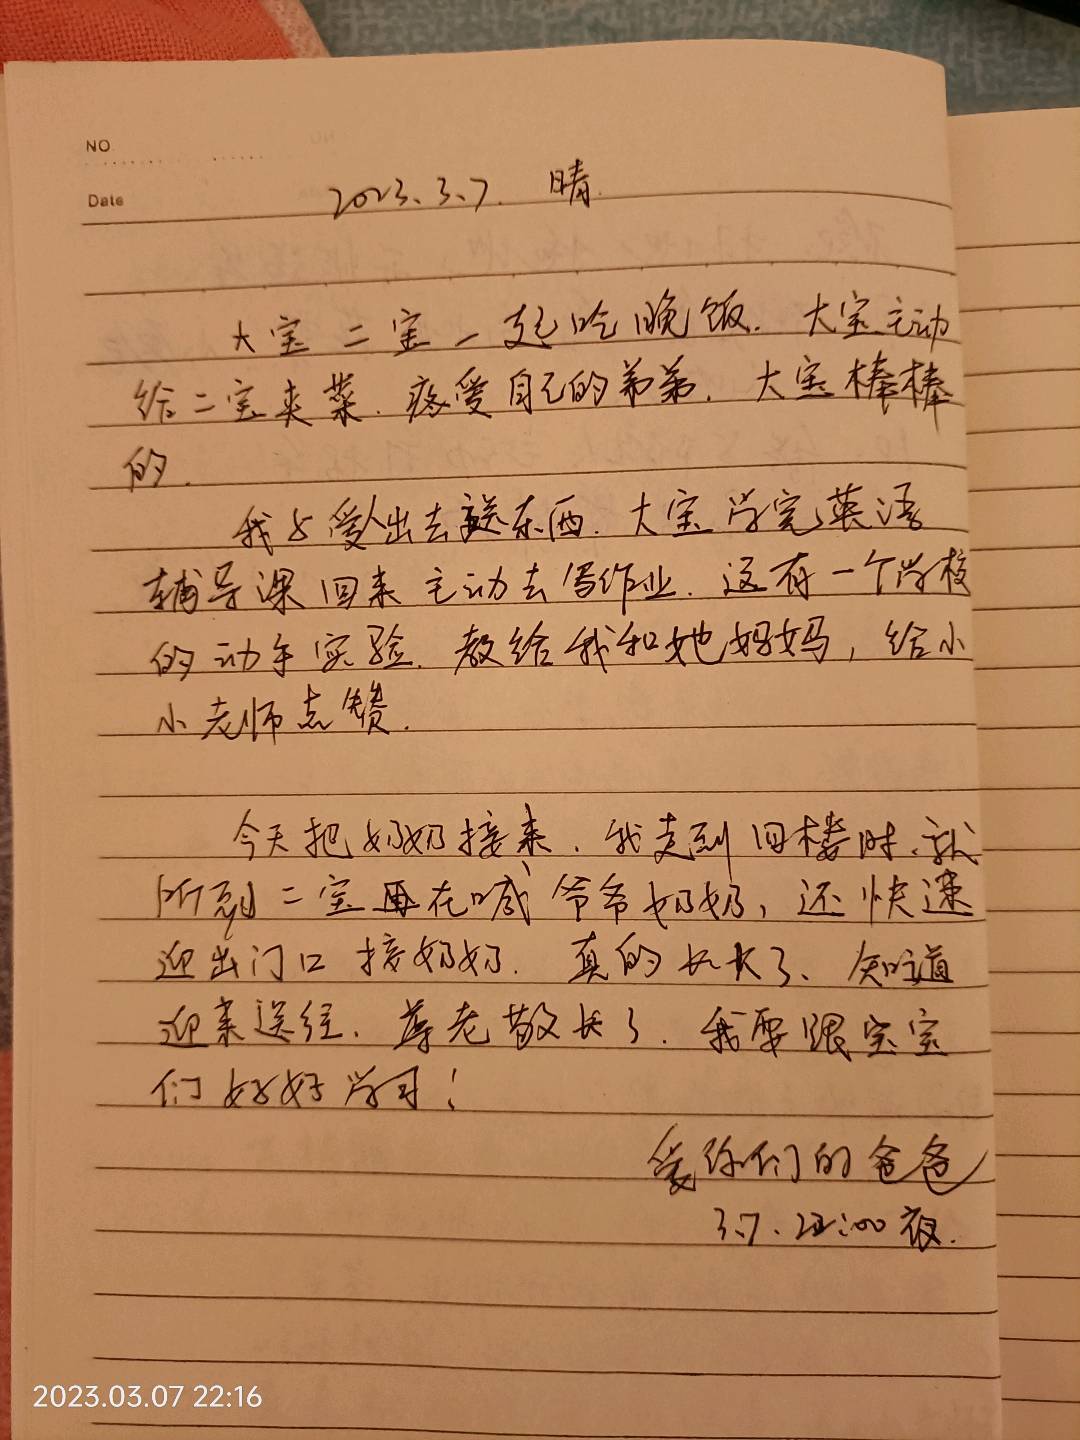 NO.
Date
2023.3.7. 晴.
大宝 二宝 一起吃晚饭. 大宝主动
给二宝夹菜. 疼爱自己的弟弟. 大宝棒棒
的.
我与爱人出去送东西. 大宝学完英语
辅导课回来主动去写作业. 还有一个学校
的动手实验. 教给我和她妈妈, 给小
小老师点赞.
今天把奶奶接来. 我走到旧楼时、就
听到二宝再在喊爷爷奶奶, 还快速
迎出门口接奶奶. 真的长大了、知道
迎来送往. 尊老敬长了. 我要跟宝宝
们好好学习!
爱你们的爸爸
3.7. 22:00夜.
2023.03.07 22:16